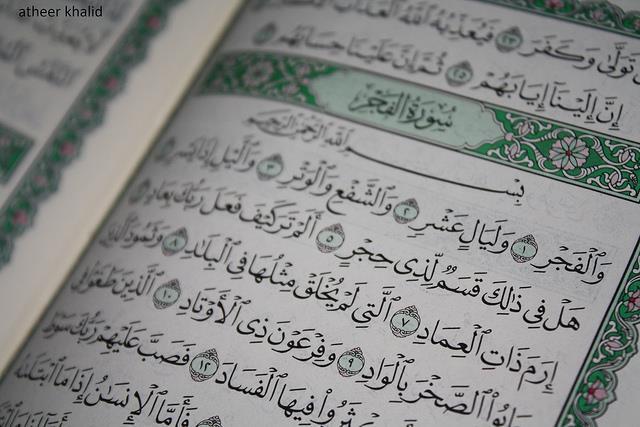 atheer khalid
تَوَلَّىٰ وَكَفَرَ ٢٣ فَيُعَذِّبُهُ ٱللَّهُ ٱلۡعَذَابَ
إِنَّ إِلَيۡنَآ إِيَابَهُمۡ ٢٥ ثُمَّ إِنَّ عَلَيۡنَا حِسَابَهُم
سُورَةُ الفَجْرِ
بِسۡمِ ٱللَّهِ ٱلرَّحۡمَٰنِ ٱلرَّحِيمِ
وَٱلۡفَجۡرِ ١ وَلَيَالٍ عَشۡرٖ ٢ وَٱلشَّفۡعِ وَٱلۡوَتۡرِ ٣ وَٱلَّيۡلِ إِذَا يَسۡرِ
هَلۡ فِي ذَٰلِكَ قَسَمٞ لِّذِي حِجۡرٍ ٥ أَلَمۡ تَرَ كَيۡفَ فَعَلَ رَبُّكَ بِعَادٍ
إِرَمَ ذَاتِ ٱلۡعِمَادِ ٧ ٱلَّتِي لَمۡ يُخۡلَقۡ مِثۡلُهَا فِي ٱلۡبِلَٰدِ ٨ وَثَمُودَ ٱلَّذِينَ
جَابُواْ ٱلصَّخۡرَ بِٱلۡوَادِ ٩ وَفِرۡعَوۡنَ ذِي ٱلۡأَوۡتَادِ ١٠ ٱلَّذِينَ طَغَوۡاْ فِي
فَأَكۡثَرُواْ فِيهَا ٱلۡفَسَادَ ١٢ فَصَبَّ عَلَيۡهِمۡ رَبُّكَ سَوۡطَ
فَأَمَّا ٱلۡإِنسَٰنُ إِذَا مَا ٱبۡتَلَىٰهُ